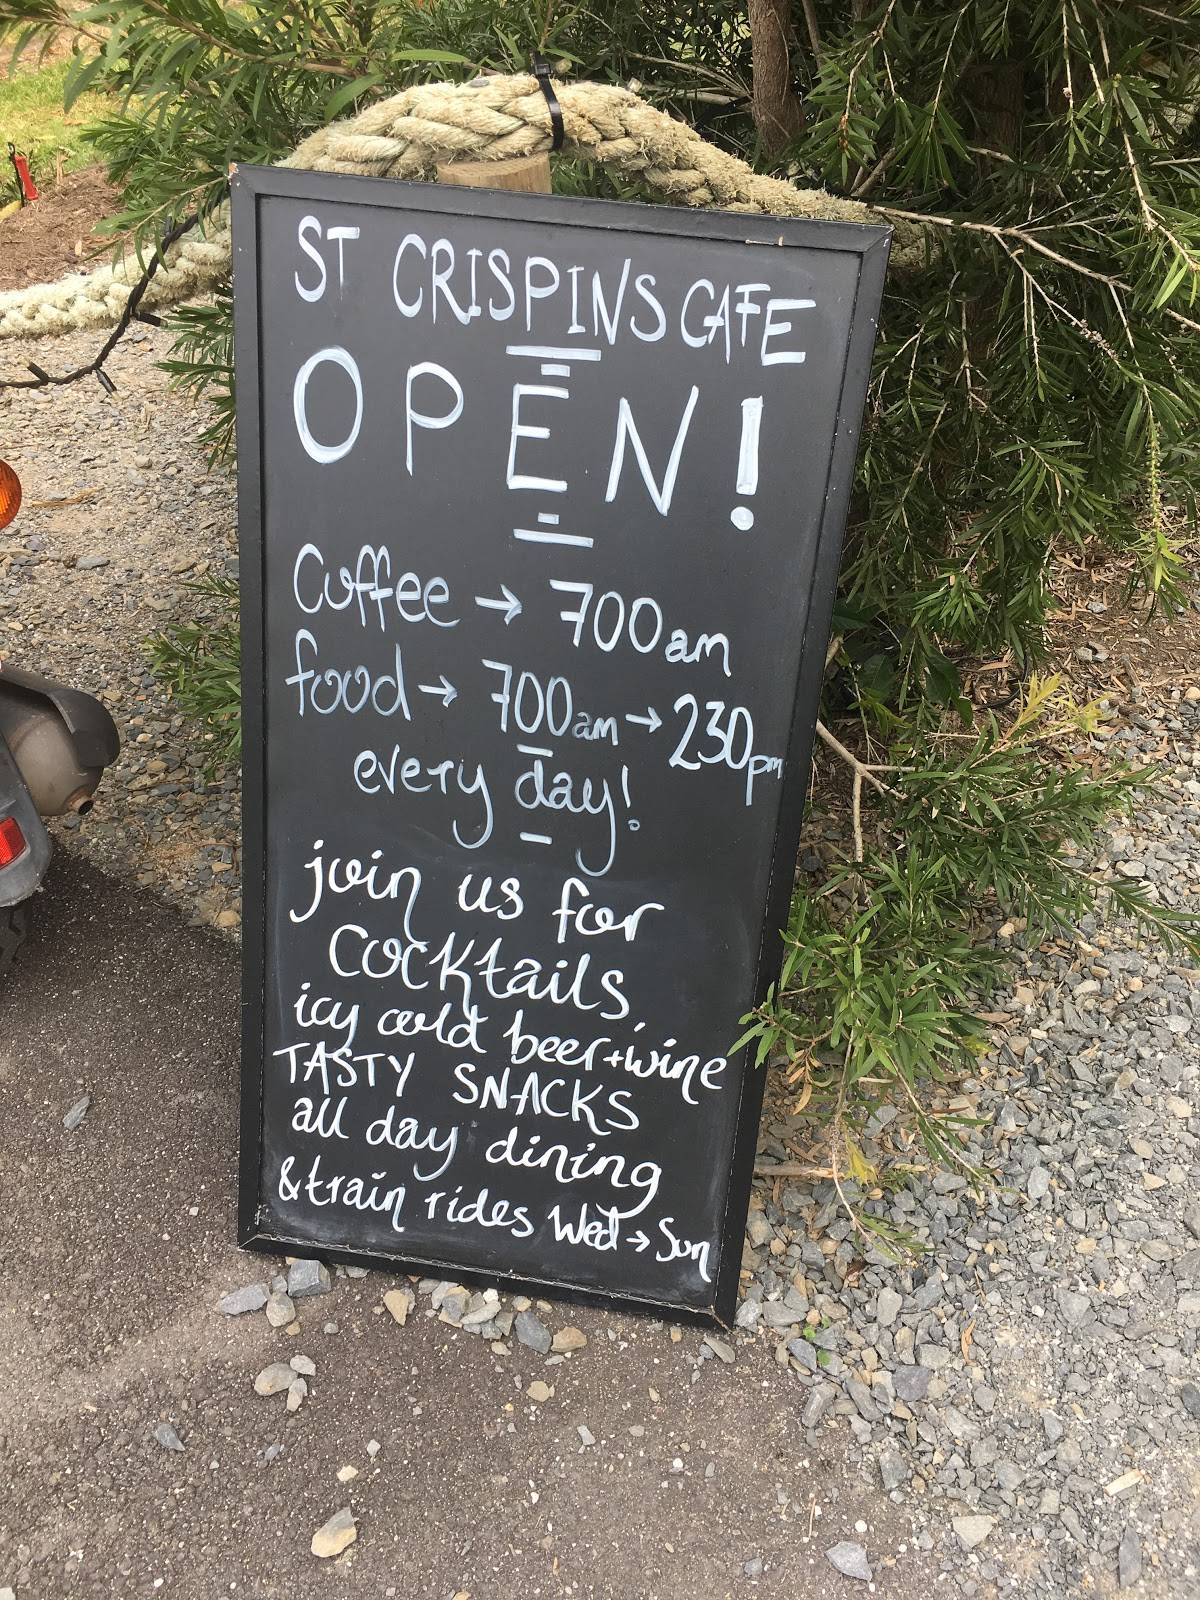 ST CRISPINS CAFE
OPEN!
Coffee → 700am
food → 700am → 230pm
every day!
join us for
Cocktails,
icy cold beer + wine
TASTY SNACKS
all day dining
& train rides Wed → Sun